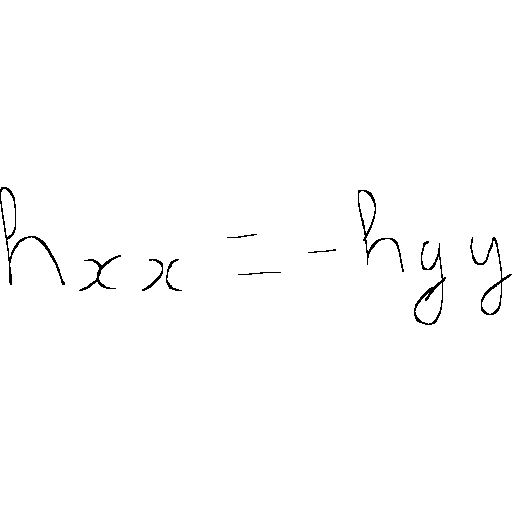 h_{xx} = -h_{yy}